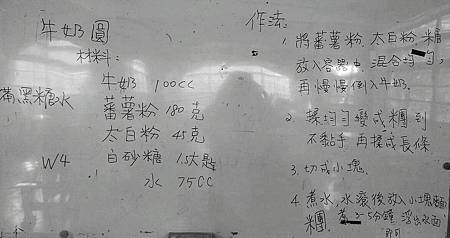 牛奶圓
材料:
牛奶 100cc
蕃薯粉 180克
太白粉 45克
白砂糖 1.5大匙
水 75cc
黑糖水
W4
作法:
1. 將蕃薯粉、太白粉、糖
放入容器中,混合均勻,
再慢慢倒入牛奶.
2. 揉均勻變成糰到
不黏手,再揉成長條
3. 切成小塊.
4. 煮水,水滾後放入小塊
糰. 2-5分鐘 浮出水面
即可